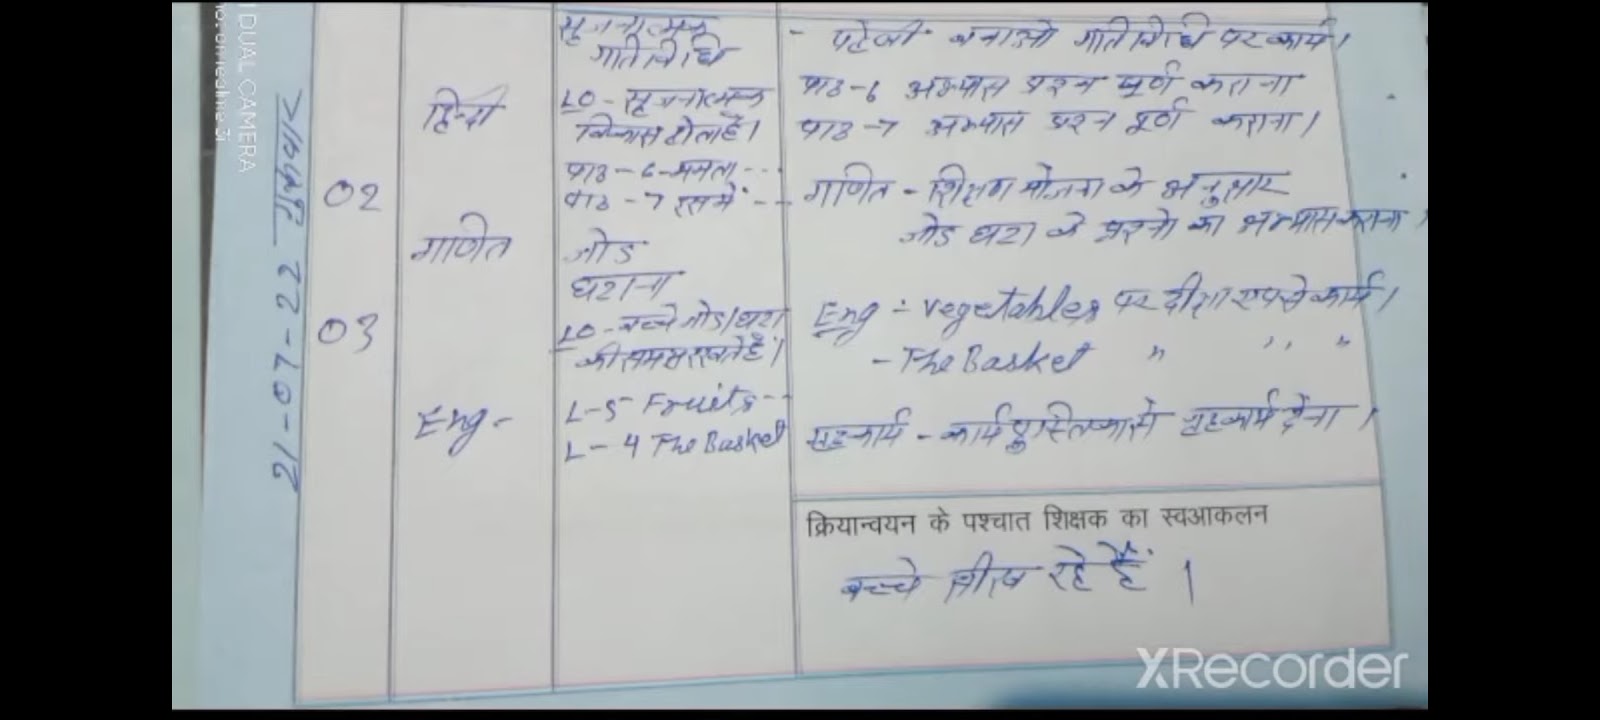 DUAL CAMERA
hot on realme 3i
21-07-22 गुरुवार
02
03
हिन्दी
गणित
Eng-
सृजनात्मक
गतिविधि
LO- सृजनात्मक
विकास होता है।
पाठ-6-ममता---
पाठ-7 इसमें---
जोड
घटाना
LO-बच्चे जोड/घटा
की समझ रखते हैं।
L-5 Fruits--
L-4 The Basket
- पहेली बनाओ गतिविधि पर कार्य।
पाठ-6 अभ्यास प्रश्न पूर्ण कराना
पाठ-7 अभ्यास प्रश्न पूर्ण कराना।
गणित - शिक्षण योजना के अनुसार
जोड घटा के प्रश्नो का अभ्यास कराना।
Eng - Vegetables पर दीक्षा एप से कार्य।
- The Basket " " "
गृहकार्य - कार्यपुस्तिका से गृहकार्य देना।
क्रियान्वयन के पश्चात शिक्षक का स्वआकलन
बच्चे सीख रहे हैं।
XRecorder